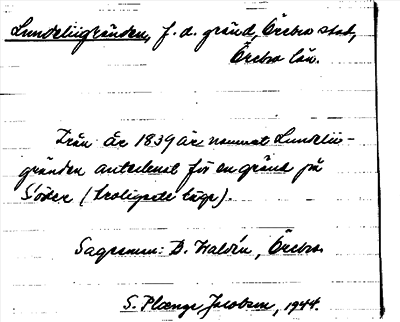 Lundeliigränden, f. d. gränd, Örebro stad,
Örebro län.
Från år 1839 är namnet Lundelii-
gränden antecknat för en gränd på
Söder (troligaste läge).
Sagesman: B. Waldén, Örebro
S. Plænge Jacobson, 1944.